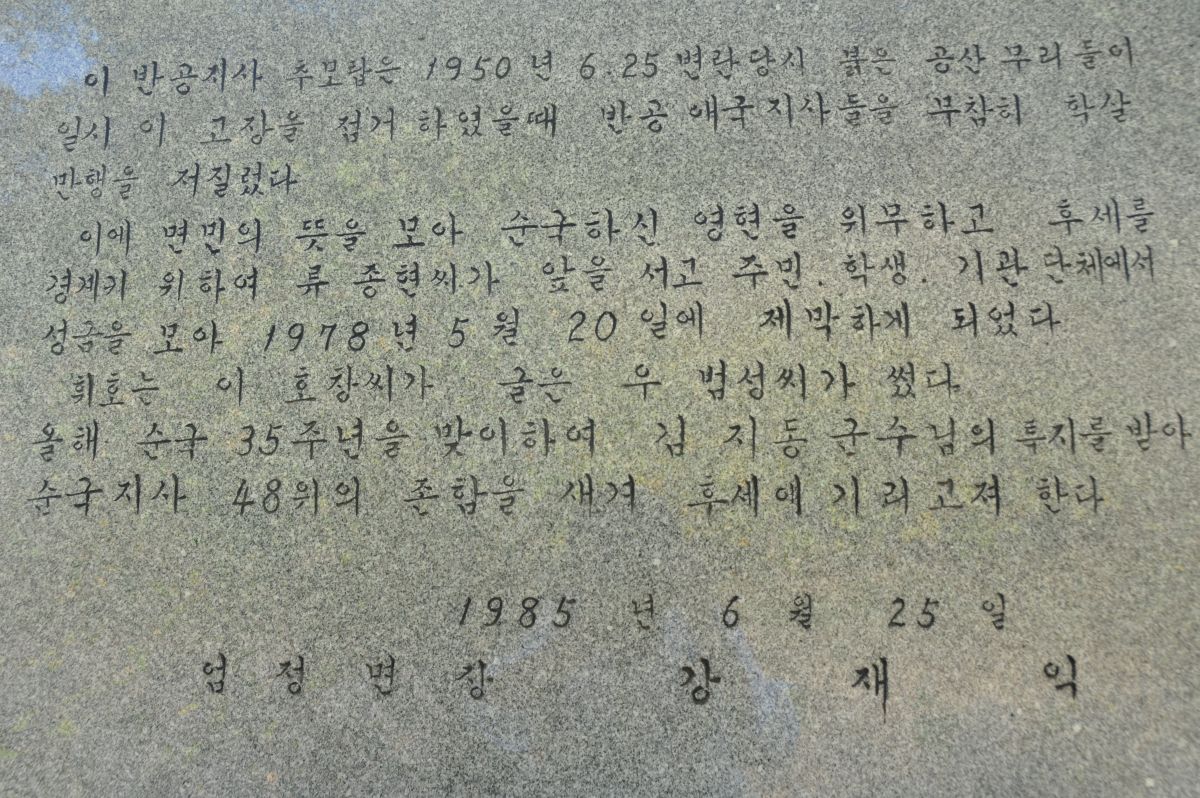 이 반공지사 추모탑은 1950년 6.25변란당시 붉은 공산무리들이
일시 이 고장을 점거 하였을때 반공 애국지사들을 무참히 학살
만행을 저질렀다
이에 면민의 뜻을 모아 순국하신 영현을 위무하고 후세를
경계키 위하여 류 종현씨가 앞을 서고 주민. 학생. 기관단체에서
성금을 모아 1978년 5월 20일에 제막하게 되었다
휘호는 이 호창씨가 글은 우 범성씨가 썼다
올해 순국 35주년을 맞이하여 김 지동 군수님의 특지를 받아
순국지사 48위의 존함을 새겨 후세에 기리고져 한다
1985 년 6 월 25 일
엄 정 면 장 강 재 익